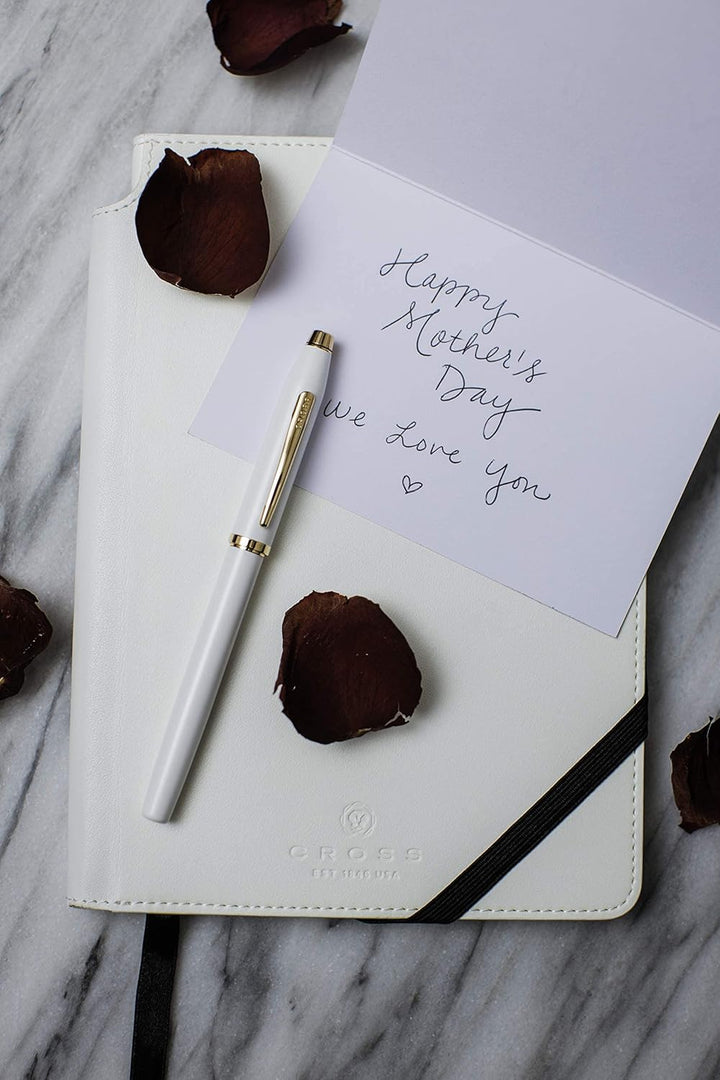 Happy
Mother's
Day
We Love You
CROSS
EST 1846 USA